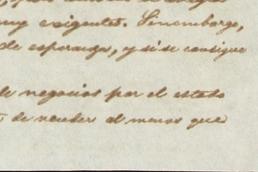 muy exigentes. Sin embargo,
de esperanza, y si se consigue
de negocios por el estado
de vender al menos que